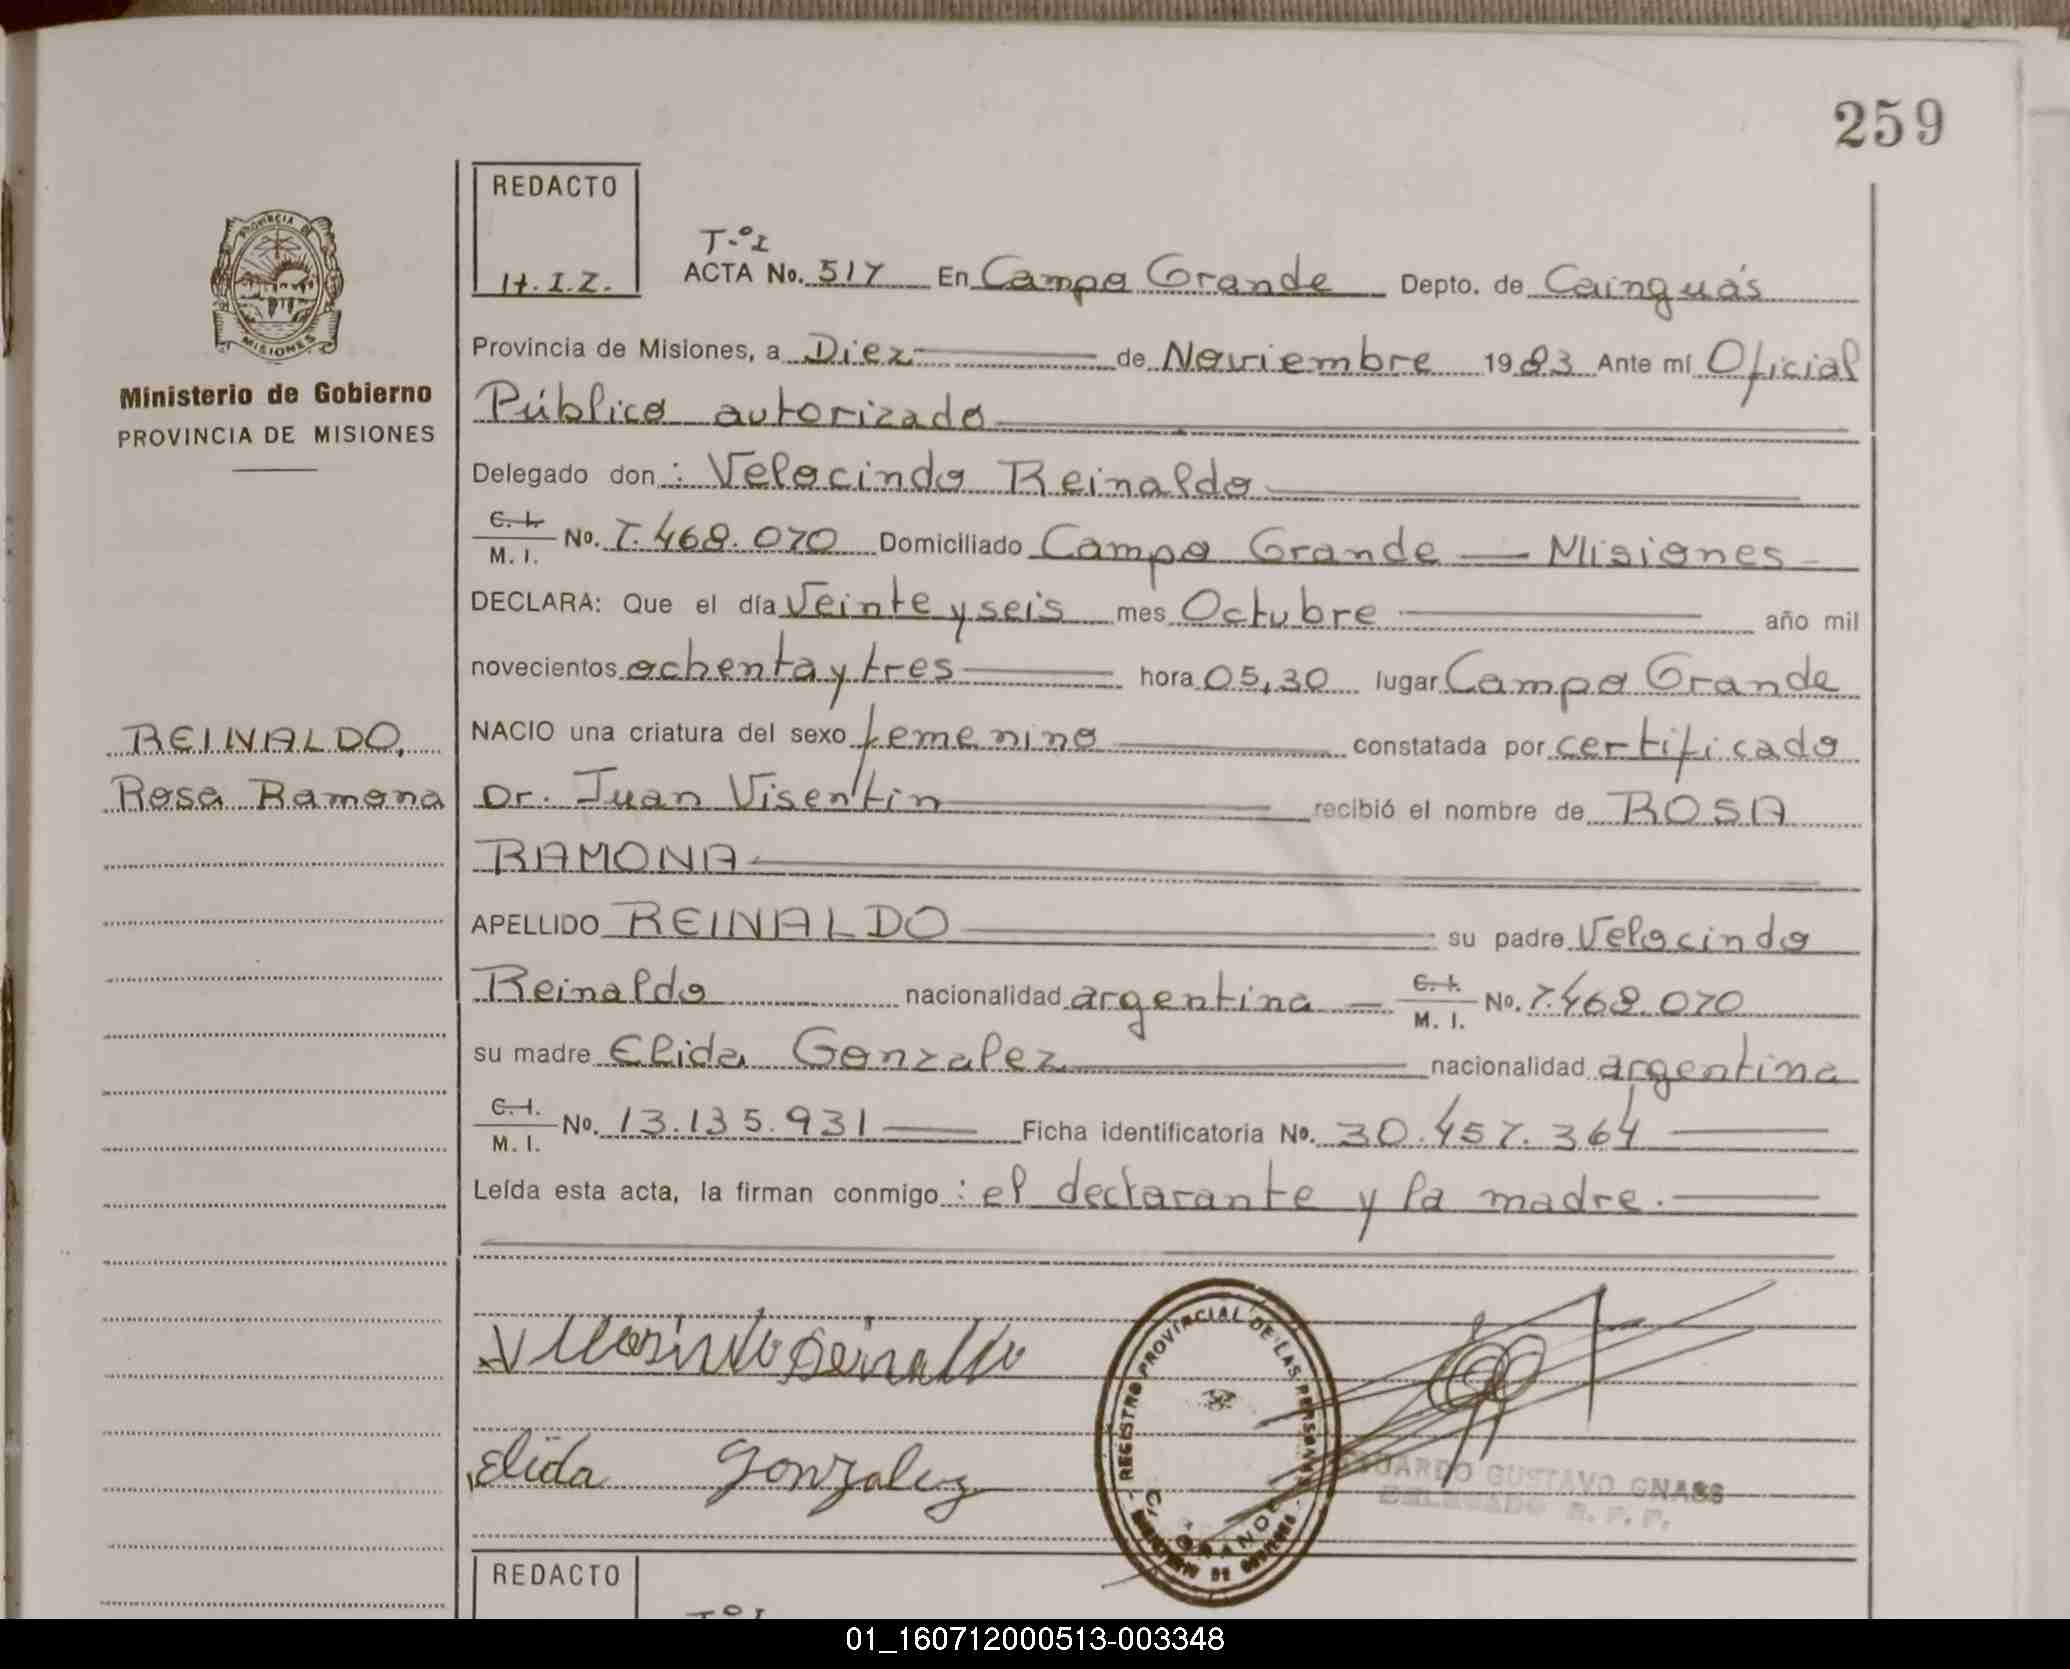 259
REDACTO
H.I.Z.
T.º I
ACTA No. 517 En Campo Grande Depto. de Cainguás
Provincia de Misiones, a Diez de Noviembre 1983 Ante mí Oficial
Público autorizado
Delegado don: Velocindo Reinaldo
C. I.
M. I. No. 7.468.070 Domiciliado Campo Grande — Misiones
DECLARA: Que el día Veinte y seis mes Octubre año mil
novecientos ochenta y tres hora 05,30 lugar Campo Grande
NACIO una criatura del sexo femenino constatada por certificado
Dr. Juan Visentin recibió el nombre de ROSA
RAMONA
APELLIDO REINALDO su padre Velocindo
Reinaldo nacionalidad argentina C. I. M. I. No. 7.468.070
su madre Elida Gonzalez nacionalidad argentina
C. I.
M. I. No. 13.135.931 Ficha identificatoria No. 30.457.364
Leída esta acta, la firman conmigo: el declarante y la madre.
PROVINCIA DE
MISIONES
Ministerio de Gobierno
PROVINCIA DE MISIONES
REINALDO,
Rosa Ramona
Elida Gonzalez
REGISTRO PROVINCIAL DE LAS PERSONAS
GRANDE
EDUARDO GUSTAVO GNASS
DELEGADO R. P. P.
REDACTO
Tº I
01_160712000513-003348